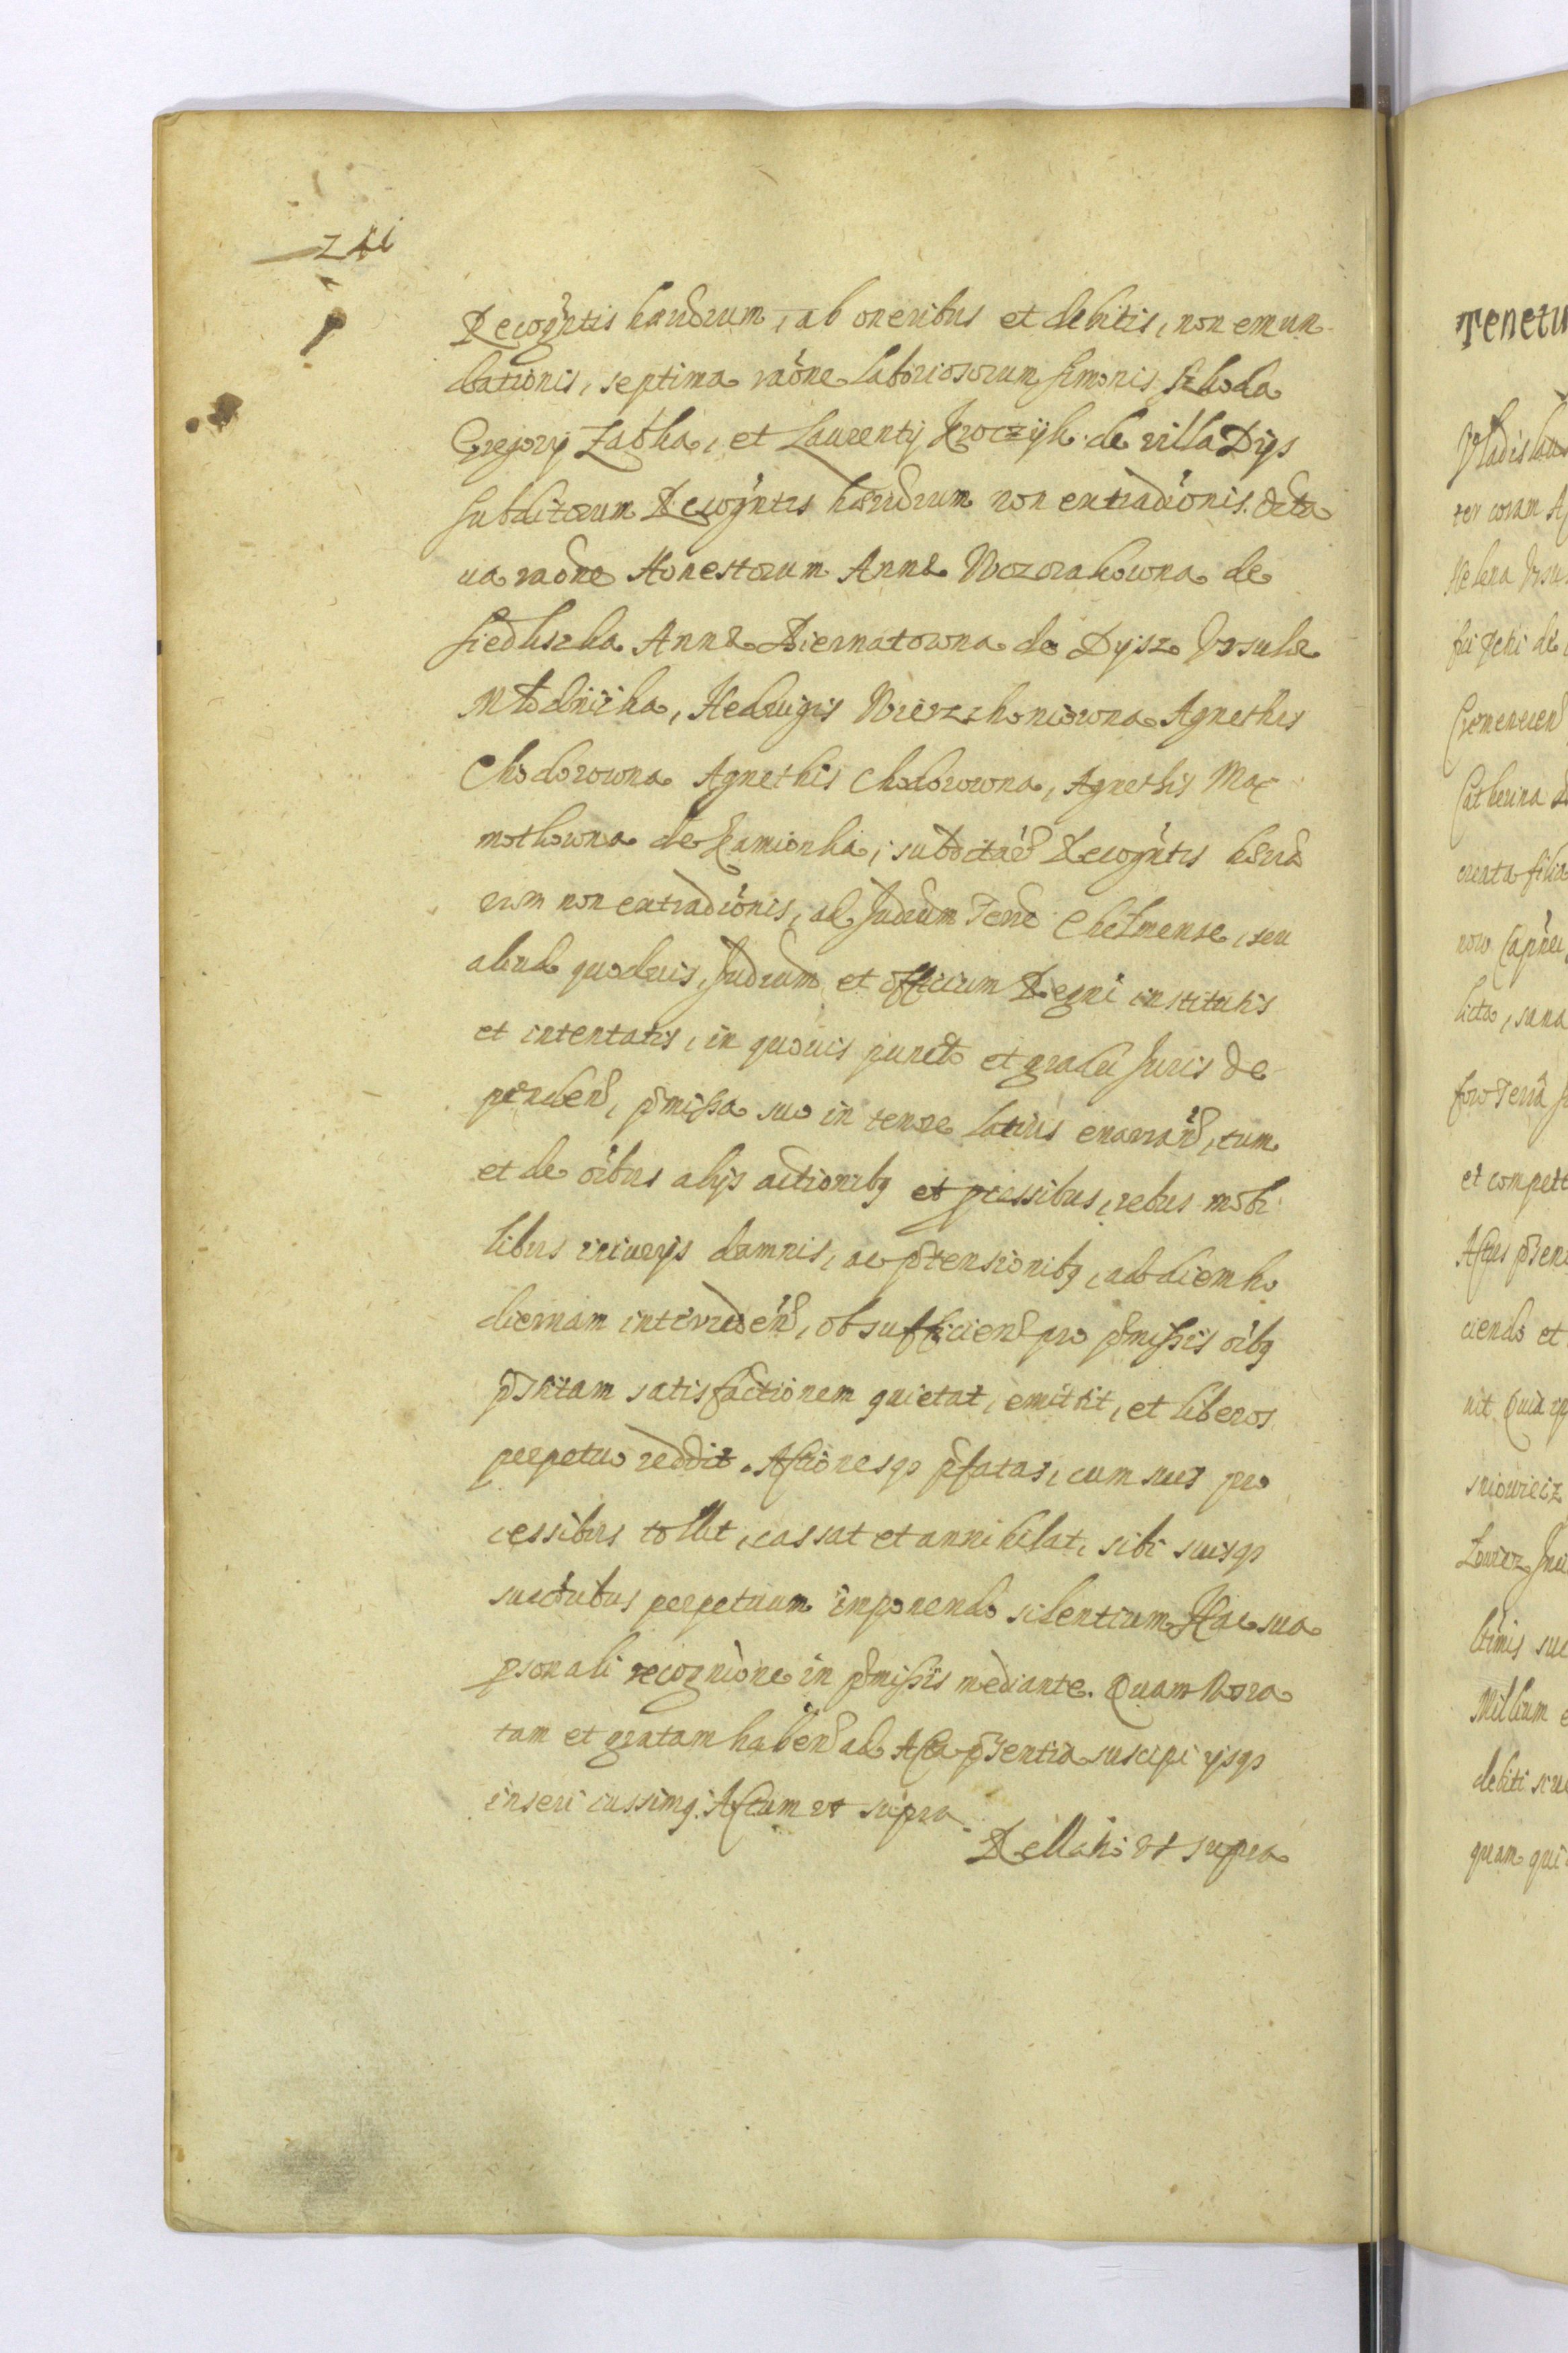 241
Recogntis haerdrum, ab oneribus et debitis, non emun
dationis, septima raone Laboriosorum Simonis Szkoda
Gregorij Zabka, et Laurentij Kroczyk de villa Dys
subditorum Recogntis haerdrum non extradionis. Octa
ua raone Honestorum Annae Wozorakowna de
Siedliszka Annae Biernatowna de Dysz Vrsulae
Młodnicka, Heduigis Wierzchoniowna Agnethis
Chodorowna Agnethis Chodorowna, Agnethis Max
mothowna de Kamionka, subditar Recogntis haerd
rum non extradionis, ad Judium Terre Chelmense, seu
aliud quoduis Judium et officium Regni institutis
et intentatis, in quouis puncto et gradu Juris de
penden, pmissa suo in tenore latius enarran, tum
et de oibus alijs actionibq et pcessibus, rebus mobi
libus iniurijs damnis, ac ptensionibq, ad diem ho
diernam interueden, ob sufficien pro pmissis oibq
pstitam satisfactionem quietat, emittit, et liberos
perpetuo reddit. Actionesqz pfatas, cum suis pro
cessibus tollit, cassat et annihilat, sibi suisqz
succorubus perpetuum imponendo silentium Hac sua
psonali recognione in pmissis mediante. Quam Nos ra
tam et gratam haben ad Acta psentia suscipi ijsqz
inseri iussimq. Actum vt supra
Rellatio vt supra
Tenetur
Vladislaus
ter coram A
Helena Vrsu
Catherina
creata filia
licto, sana
foro Terra
et compete
Actus psen
ciendo et
nit Quia
sniowicz
ltimis suc
Millium
debiti
quam qui